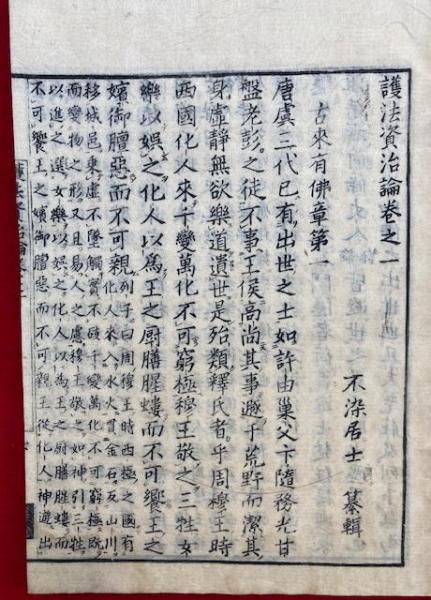 護法資治論卷之一
不染居士 纂輯
古來有佛章第一
唐虞三代已有出世之士如許由巢父卞隨務光甘
盤老彭之徒不事王侯高尚其事遯于荒野而潔其
身虛靜無欲樂道遺世是殆類釋氏者乎周穆王時
西國化人來千變萬化不可窮極穆王敬之三牲女
樂以娛之化人以爲王之厨膳腥螻而不可饗王之
嬪御膻惡而不可親列子曰周穆王時西極之國有
化人來入水火貫金石反山川
移城邑乘虛不墜觸實不硋千變萬化不可窮極既
而變物之形又且易人之慮穆王敬之如神引三牲
以進之選女樂以娛之化人以爲王之厨膳腥螻而
不可饗王之嬪御膻惡而不可親王從化人神遊出